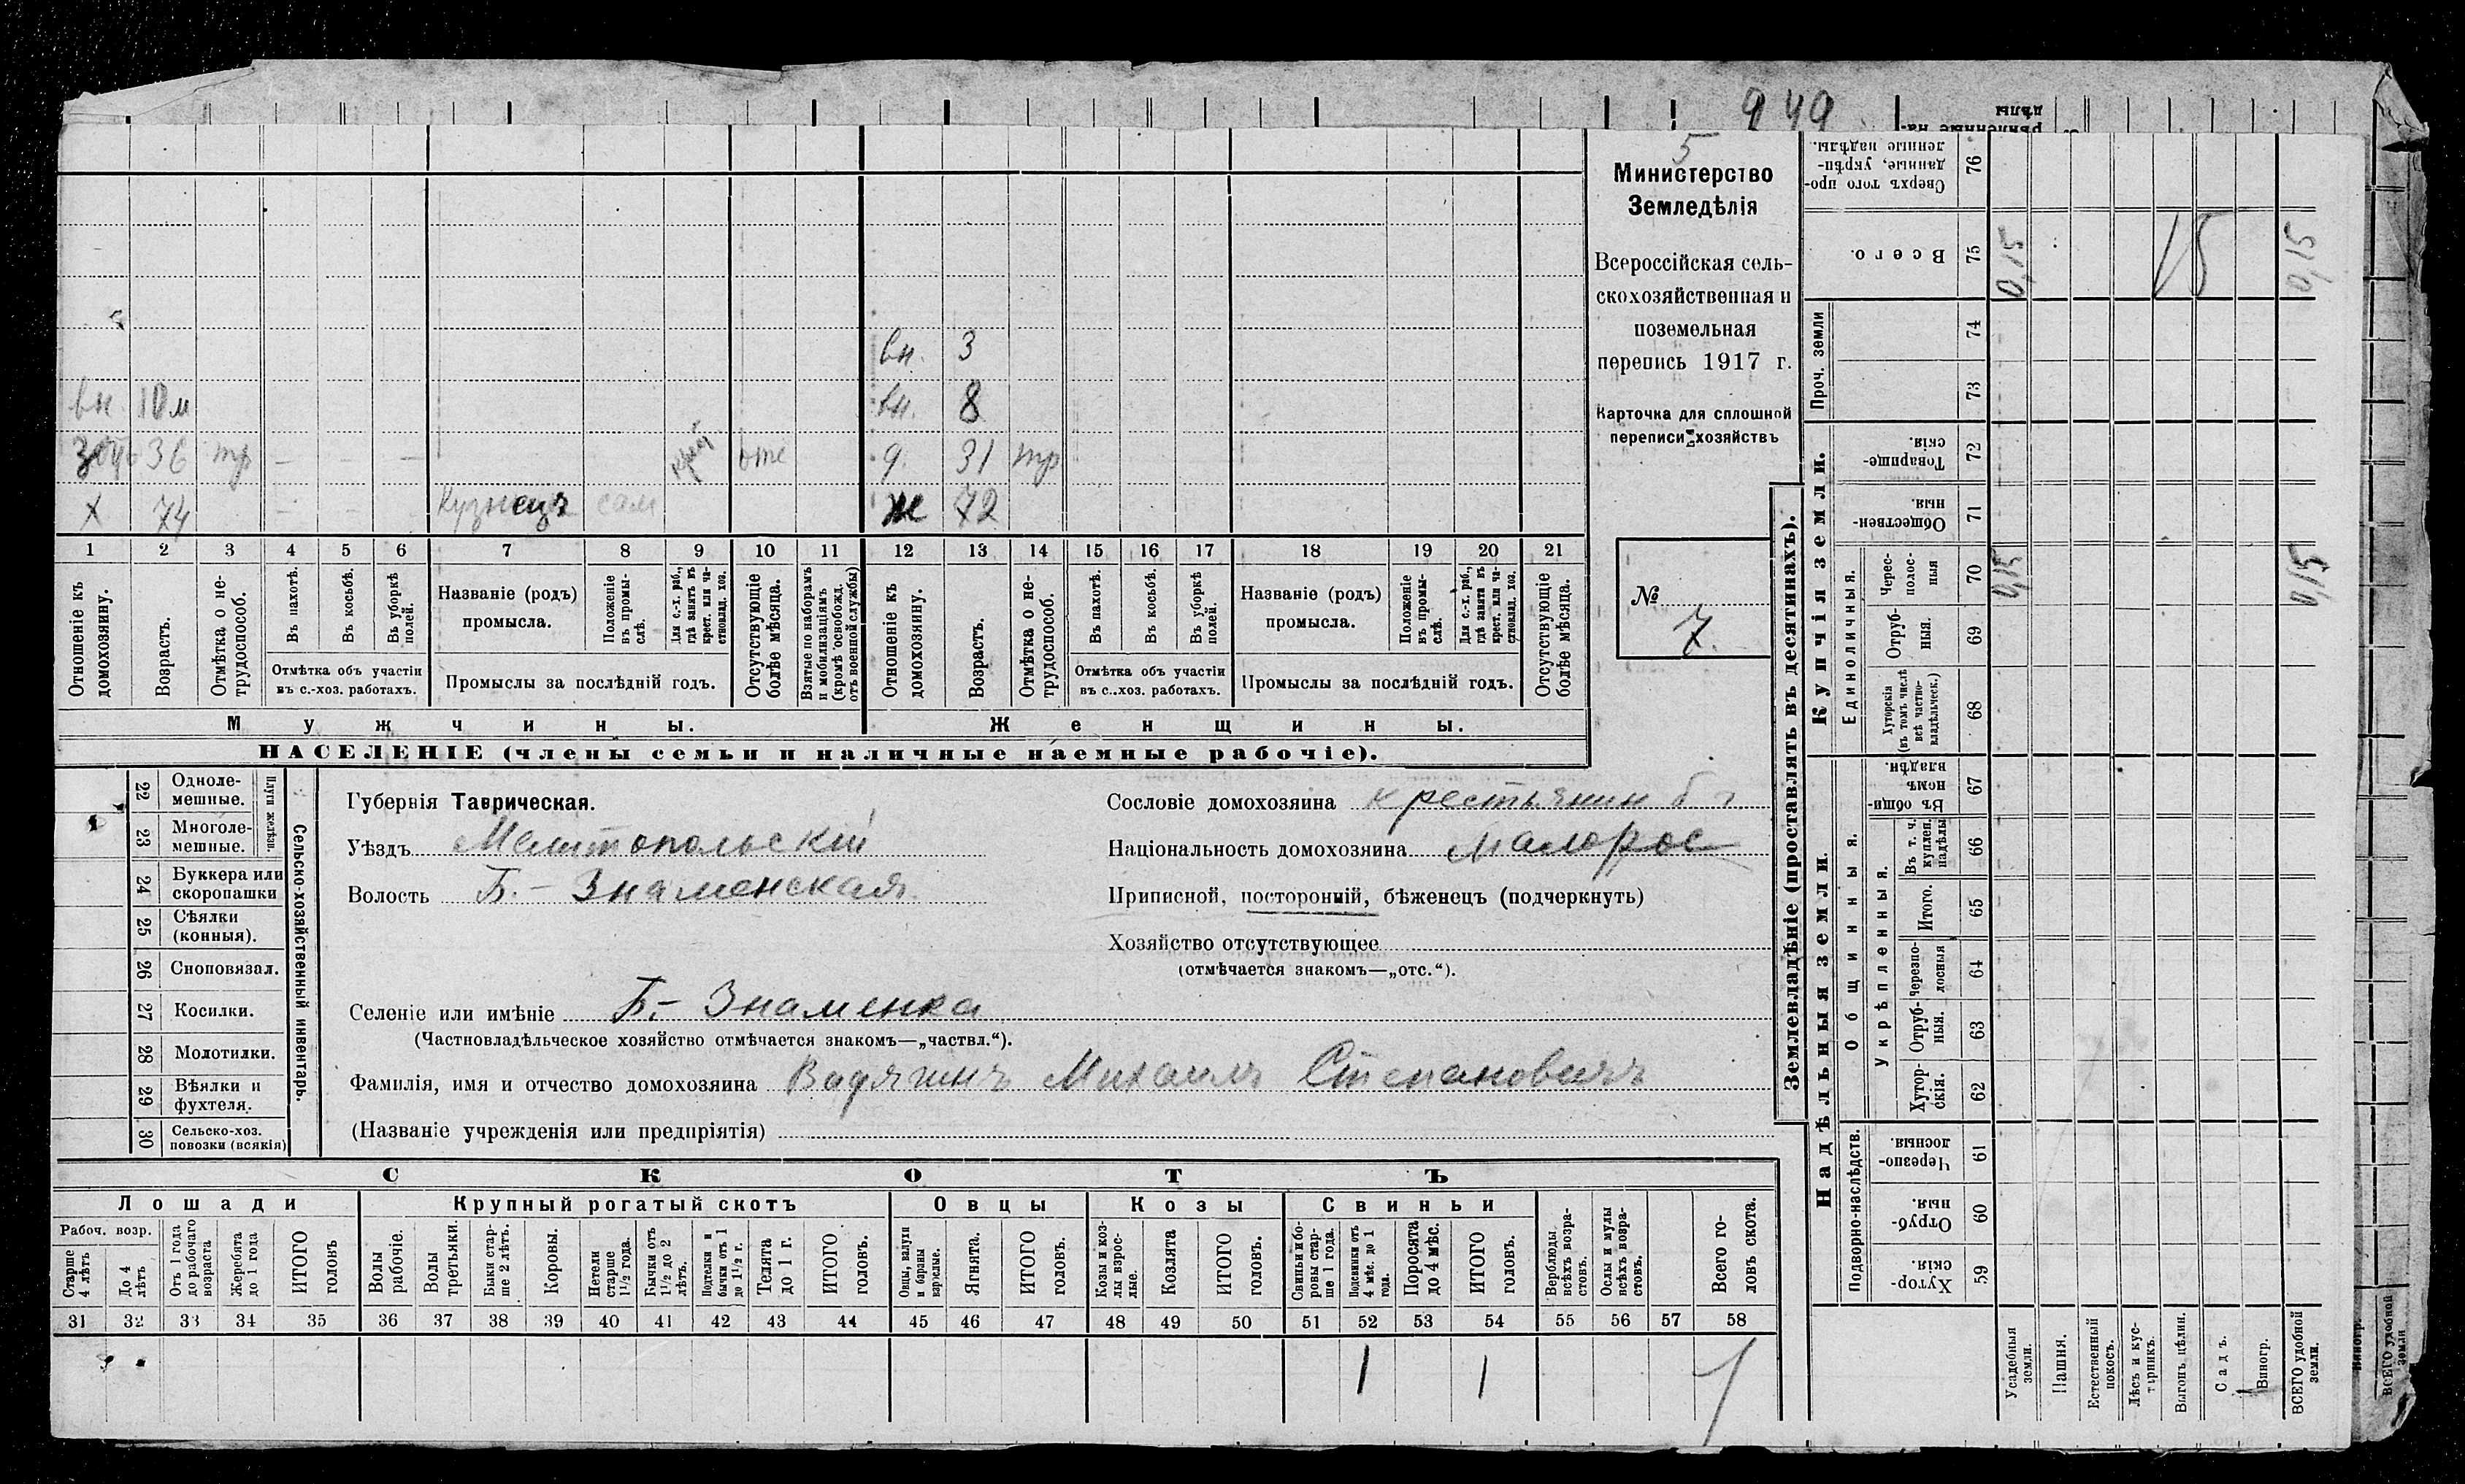 949
5
Министерство
Земледѣлія
Всероссійская сель-
скохозяйственная и
поземельная
перепись 1917 г.
Карточка для сплошной
переписи хозяйствъ
№
7.
вн. 3
вн 10м вн. 8
36 тр — — — отс д. 31 тр
х 74 — — — Кузнецъ сам ж 72
1 2 3 4 5 6 7 8 9 10 11 12 13 14 15 16 17 18 19 20 21
Отношеніе къ домохозяину.
Возрастъ.
Отмѣтка о не-трудоспособ.
Въ пахотѣ.
Въ косьбѣ.
Въ уборкѣ полей.
Отмѣтка объ участіи
въ с.-хоз. работахъ.
Названіе (родъ)
промысла.
Положеніе въ промы-слѣ.
Для с.-х. раб., гдѣ занятъ въ крест. или ча-стновлад. хоз.
Промыслы за послѣдній годъ.
Отсутствующіе болѣе мѣсяца.
Взятые по наборамъ и мобилизаціямъ (кромѣ освобожд. отъ военной службы)
Отношеніе къ домохозяину.
Возрастъ.
Отмѣтка о не-трудоспособ.
Въ пахотѣ.
Въ косьбѣ.
Въ уборкѣ полей.
Отмѣтка объ участіи
въ с..хоз. работахъ.
Названіе (родъ)
промысла.
Положеніе въ промы-слѣ.
Для с.-х. раб., гдѣ занята въ крест. или ча-стновлад. хоз.
Промыслы за послѣдній годъ.
Отсутствующіе болѣе мѣсяца.
Мужчины. Женщины.
НАСЕЛЕНІЕ (члены семьи и наличные наемные рабочіе).
Сельско-хозяйственный инвентарь.
Плуги желѣзн.
22 Одноле-мешные.
23 Многоле-мешные.
24 Буккера или скоропашки
25 Сѣялки (конныя).
26 Сноповязал.
27 Косилки.
28 Молотилки.
29 Вѣялки и фухтеля.
30 Сельско-хоз. повозки (всякія)
Губернія Таврическая.
Уѣздъ Мелитопольскій
Волость Б.- Знаменская
Сословіе домохозяина крестьянин
Національность домохозяина малорос
Приписной, посторонній, бѣженецъ (подчеркнуть)
Хозяйство отсутствующее
(отмѣчается знакомъ—„отс.“).
Селеніе или имѣніе Б.- Знаменка
(Частновладѣльческое хозяйство отмѣчается знакомъ—„частвл.“).
Фамилія, имя и отчество домохозяина Вадягинъ Михаилъ Степановичъ
(Названіе учрежденія или предпріятія)
СКОТЪ
Лошади Крупный рогатый скотъ Овцы Козы Свиньи
Рабоч. возр.
Старше 4 лѣтъ
До 4 лѣтъ
Отъ 1 года до рабочаго возраста
Жеребята до 1 года
ИТОГО головъ
Волы рабочіе.
Волы третьяки.
Быки стар-ше 2 лѣтъ.
Коровы.
Нетели старше 1½ года.
Бычки отъ 1½ до 2 лѣтъ.
Подтелки и бычки отъ 1 до 1½ г.
Телята до 1 г.
ИТОГО головъ.
Овцы, валухи и бараны взрослые.
Ягнята.
ИТОГО головъ.
Козы и коз-лы взрос-лые.
Козлята
ИТОГО головъ.
Свиньи и бо-ровы стар-ше 1 года.
Подсвинки отъ 4 мѣс. до 1 года.
Поросята до 4 мѣс.
ИТОГО головъ.
Верблюды всѣхъ возра-стовъ.
Ослы и мулы всѣхъ возра-стовъ.
Всего го-ловъ скота.
31 32 33 34 35 36 37 38 39 40 41 42 43 44 45 46 47 48 49 50 51 52 53 54 55 56 57 58
1 1 1
Землевладѣніе (проставлять въ десятинахъ).
Сверхъ того про-данные, укрѣп-ленные надѣлы. 76
Всего. 75 0,15 15 0,15
Проч. земли
74
73
Купчія земли.
Товарище-скія. 72
Обществен-ныя 71
Единоличныя.
Черес-полос-ныя 70 0,15 0,15
Отруб-ныя. 69
Хуторскія (въ томъ числѣ всѣ частно-владѣльческ.) 68
Надѣльныя земли.
Общинныя.
Въ общи-номъ владѣн. 67
Укрѣпленныя.
Въ т. ч. куплен. надѣлы 66
Итого. 65
Черезпо-лосныя 64
Отруб-ныя. 63
Хутор-скія. 62
Подворно-наслѣдств.
Черезпо-лосныя. 61
Отруб-ныя. 60
Хутор-скія. 59
Усадебныя земли.
Пашня.
Естественный покосъ.
Лѣсъ и кус-тарникъ.
Выгонъ, цѣлин.
Садъ.
Виногр.
ВСЕГО удобной земли.
Виногр.
ВСЕГО удобной земли